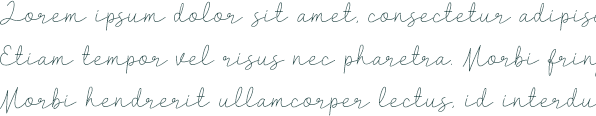 Lorem ipsum dolor sit amet, consectetur adipisc
Etiam tempor vel risus nec pharetra. Morbi fring
Morbi hendrerit ullamcorper lectus, id interdu